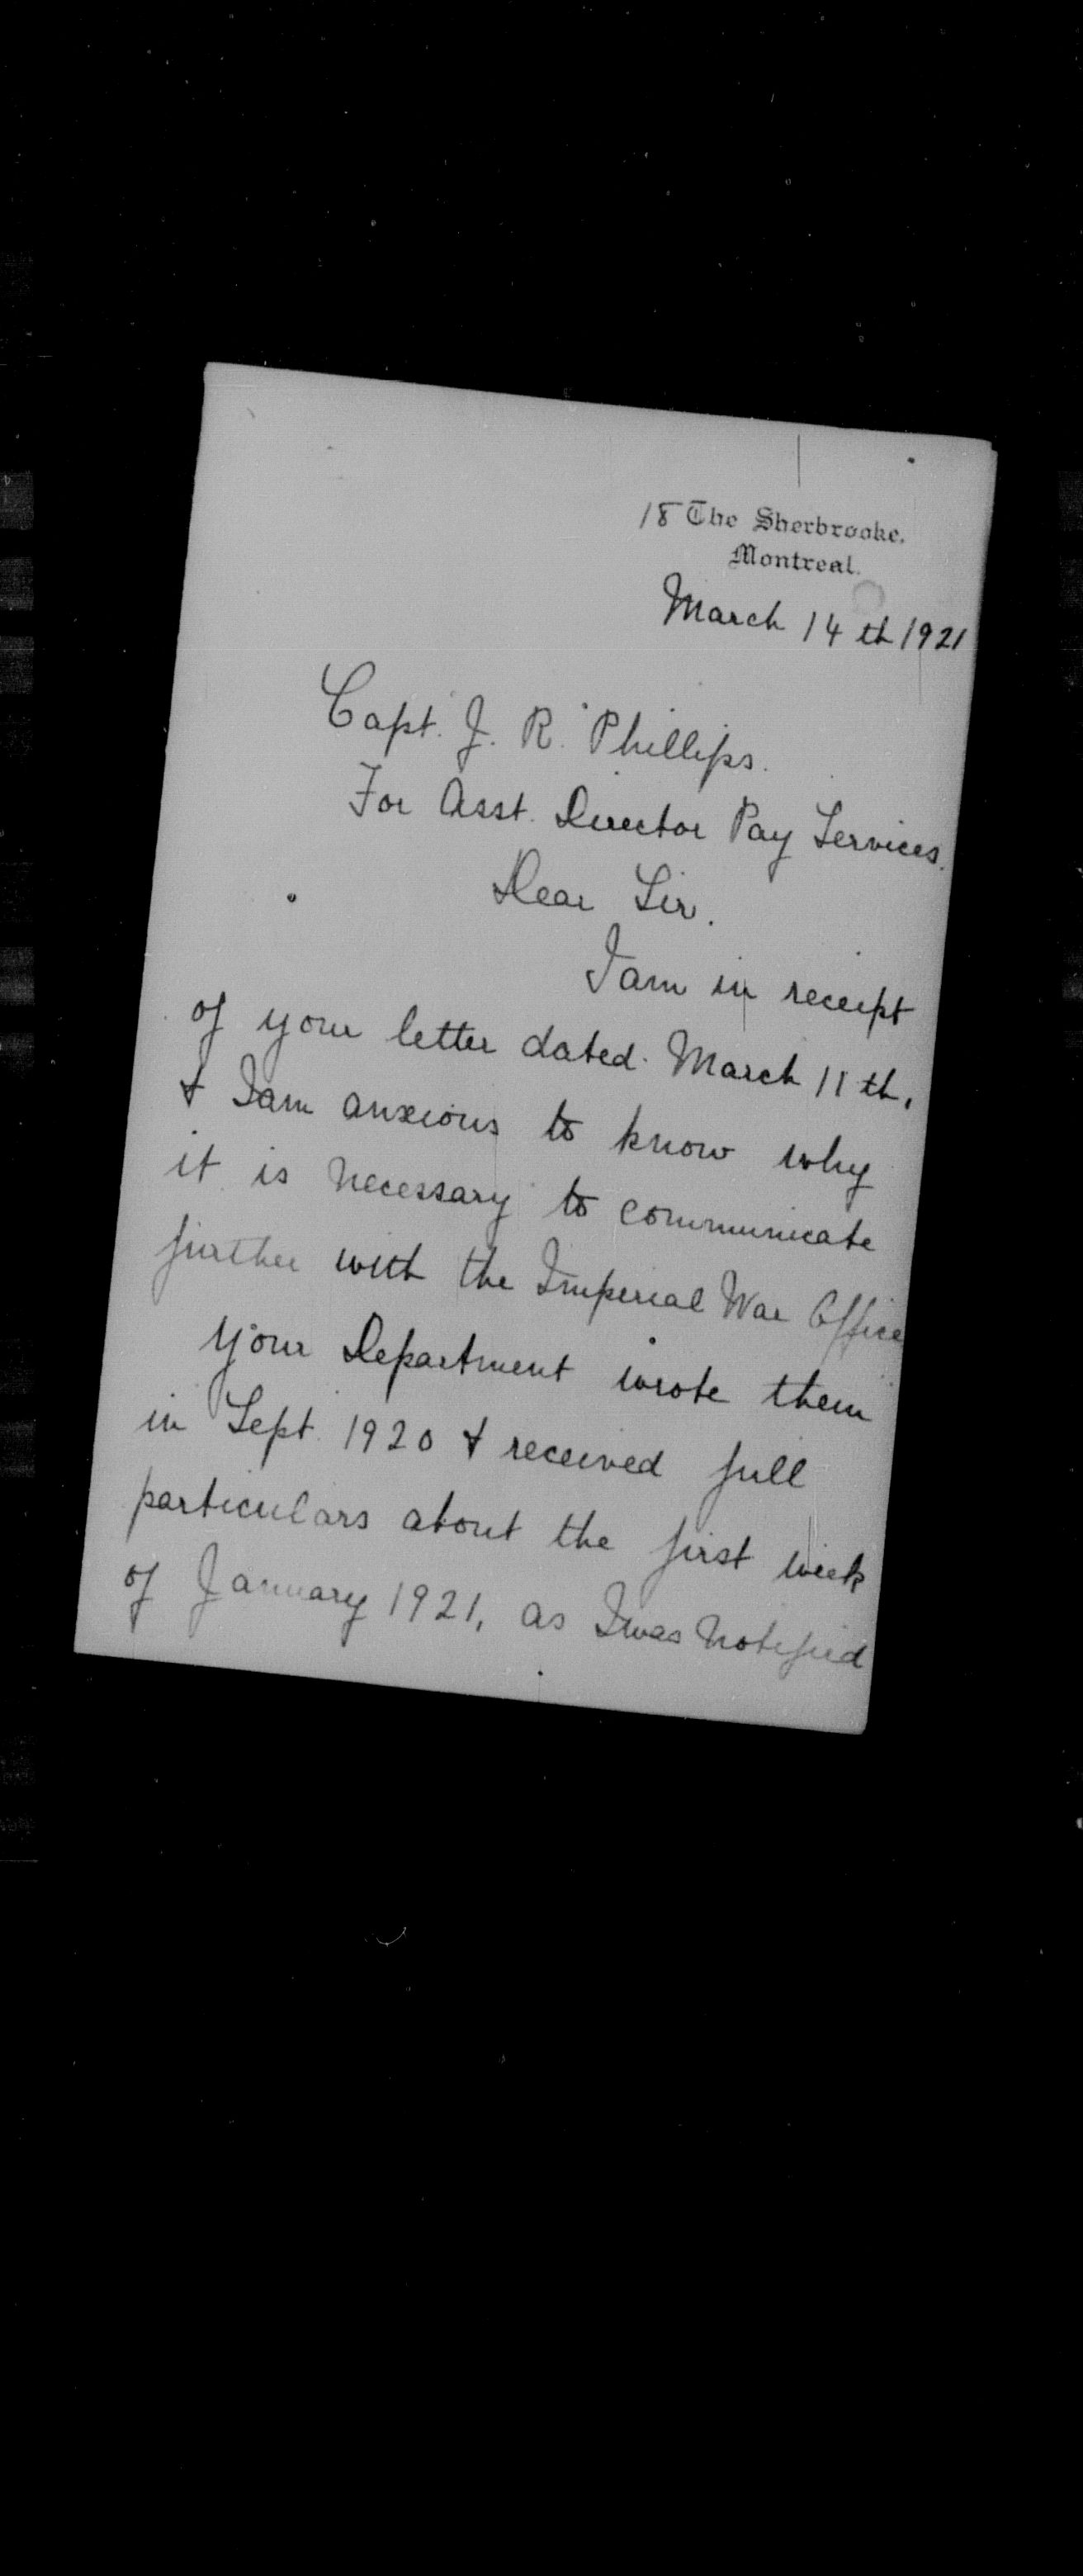 18 The Sherbrooke.
Montreal.
March 14th 1921
Capt. J. R. Phillips.
For Asst. Director Pay Services.
Dear Sir.
I am in receipt
of your letter dated March 11th,
& I am anxious to know why
it is necessary to communicate
further with the Imperial War Office
Your Department wrote them
in Sept. 1920 & received full
particulars about the first week
of January 1921, as I was notified